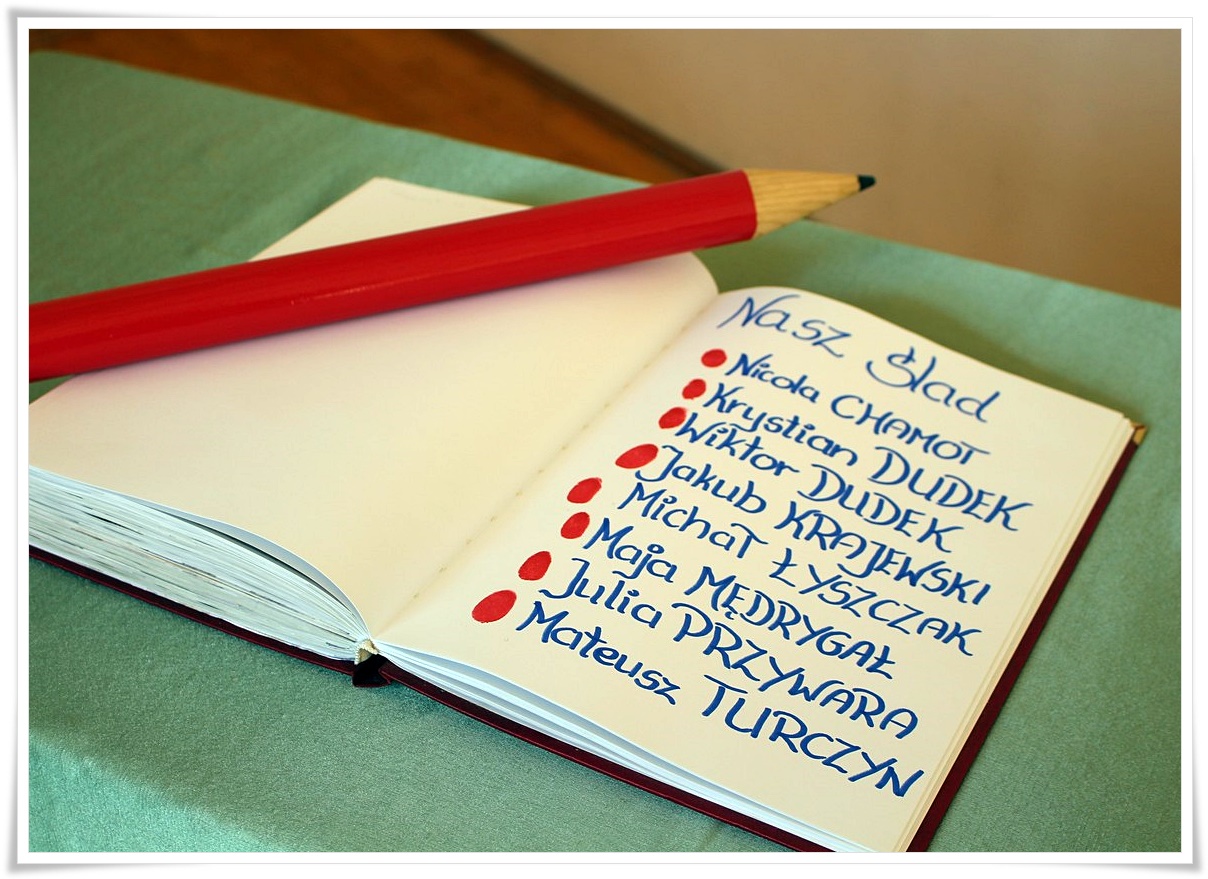 Nasz Ślad
Nicola CHAMOT
Krystian DUDEK
Wiktor DUDEK
Jakub KRAJEWSKI
Michał ŁYSZCZAK
Maja MĘDRYGAŁ
Julia PRZYWARA
Mateusz TURCZYN